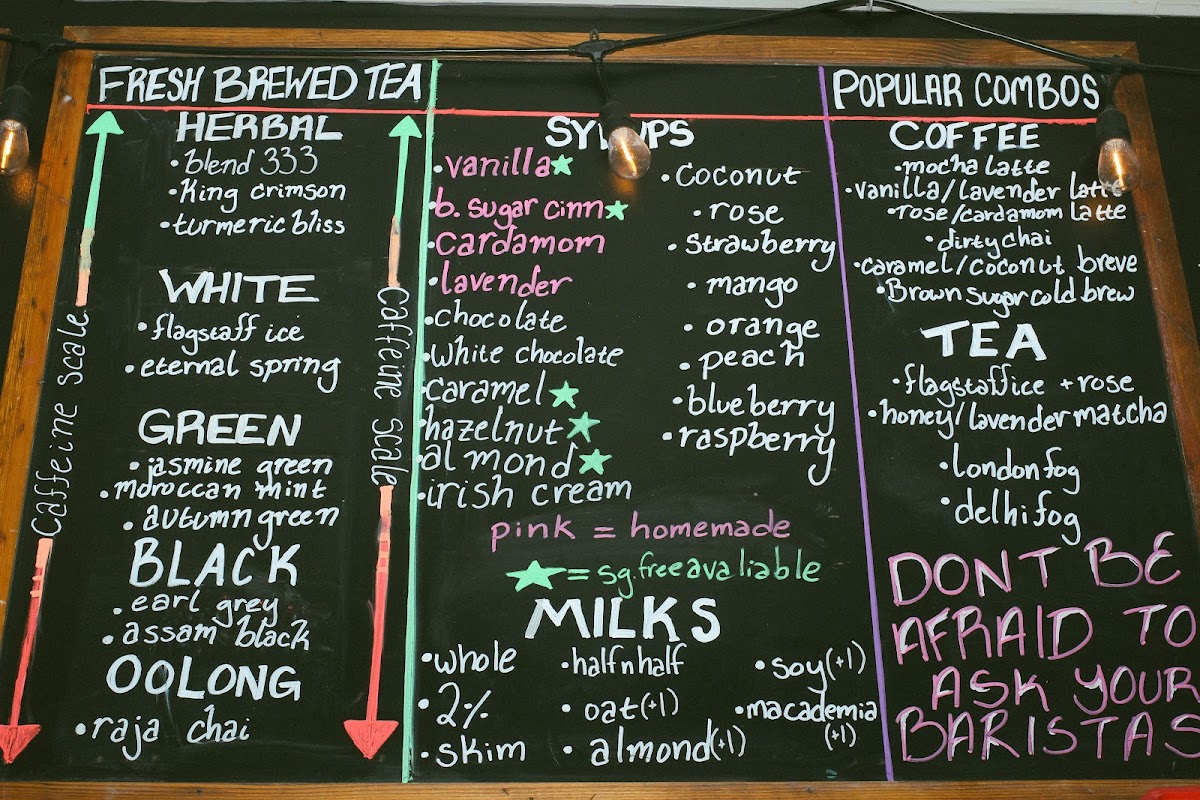 FRESH BREWED TEA
Caffeine Scale
Caffeine Scale
HERBAL
•blend 333
•King crimson
•turmeric bliss
WHITE
•flagstaff ice
•eternal spring
GREEN
•jasmine green
•moroccan mint
•autumn green
BLACK
•earl grey
•assam black
OOLONG
•raja chai
SYRUPS
•vanilla★
•b. sugar cinn★
•cardamom
•lavender
•chocolate
•white chocolate
•caramel★
•hazelnut★
•almond★
•irish cream
•coconut
•rose
•strawberry
•mango
•orange
•peach
•blueberry
•raspberry
pink = homemade
★= sg.free avaliable
MILKS
•whole
•2%
•skim
•half n half
•oat(+1)
•almond(+1)
•soy(+1)
•macadamia
(+1)
POPULAR COMBOS
COFFEE
•mocha latte
•vanilla/lavender latte
•rose/cardamom latte
•dirty chai
•caramel/coconut breve
•Brown sugar cold brew
TEA
•flagstaff ice + rose
•honey/lavender matcha
•london fog
•delhi fog
DONT BE
AFRAID TO
ASK YOUR
BARISTAS